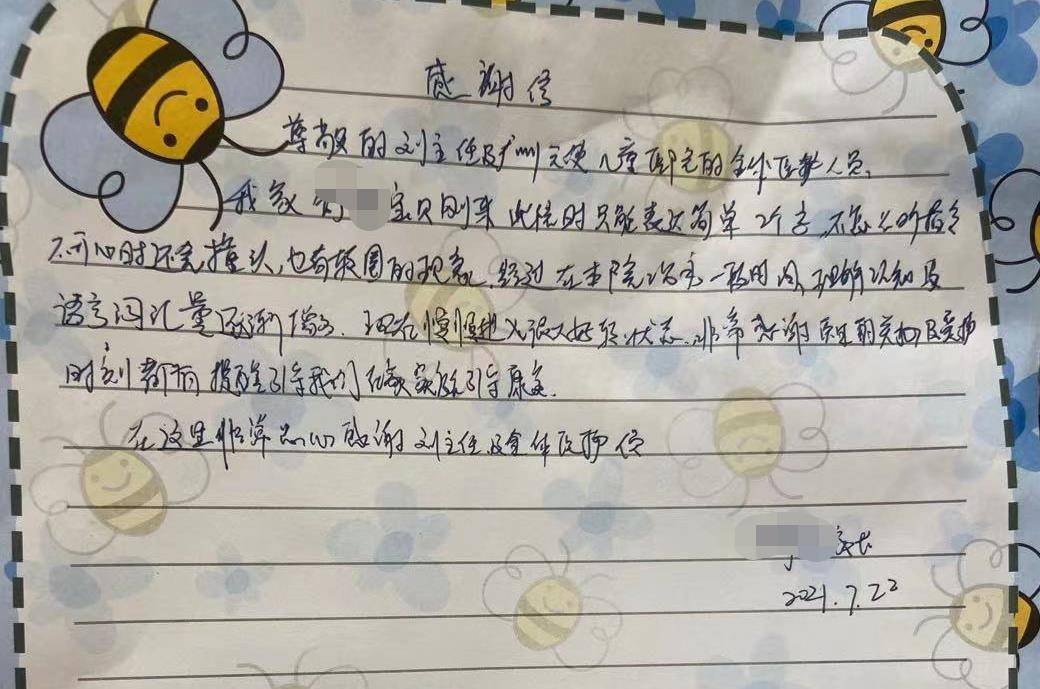 感谢信
尊敬的刘主任及广州天使儿童医院的全体医护人员,
我家的宝贝刚来此住时只能表达简单2个字,不怎么听指令
不开心时还会撞头,也有转圈的现象,经过在本院治疗一段时间,理解认知及
语言词汇量逐渐增多.现在慢慢进入很大好转状态.非常感谢医生的关心及
时刻都有提醒引导我们在家实际引导康复.
在这里非常忠心感谢刘主任及全体医护人
家长
2021.7.22